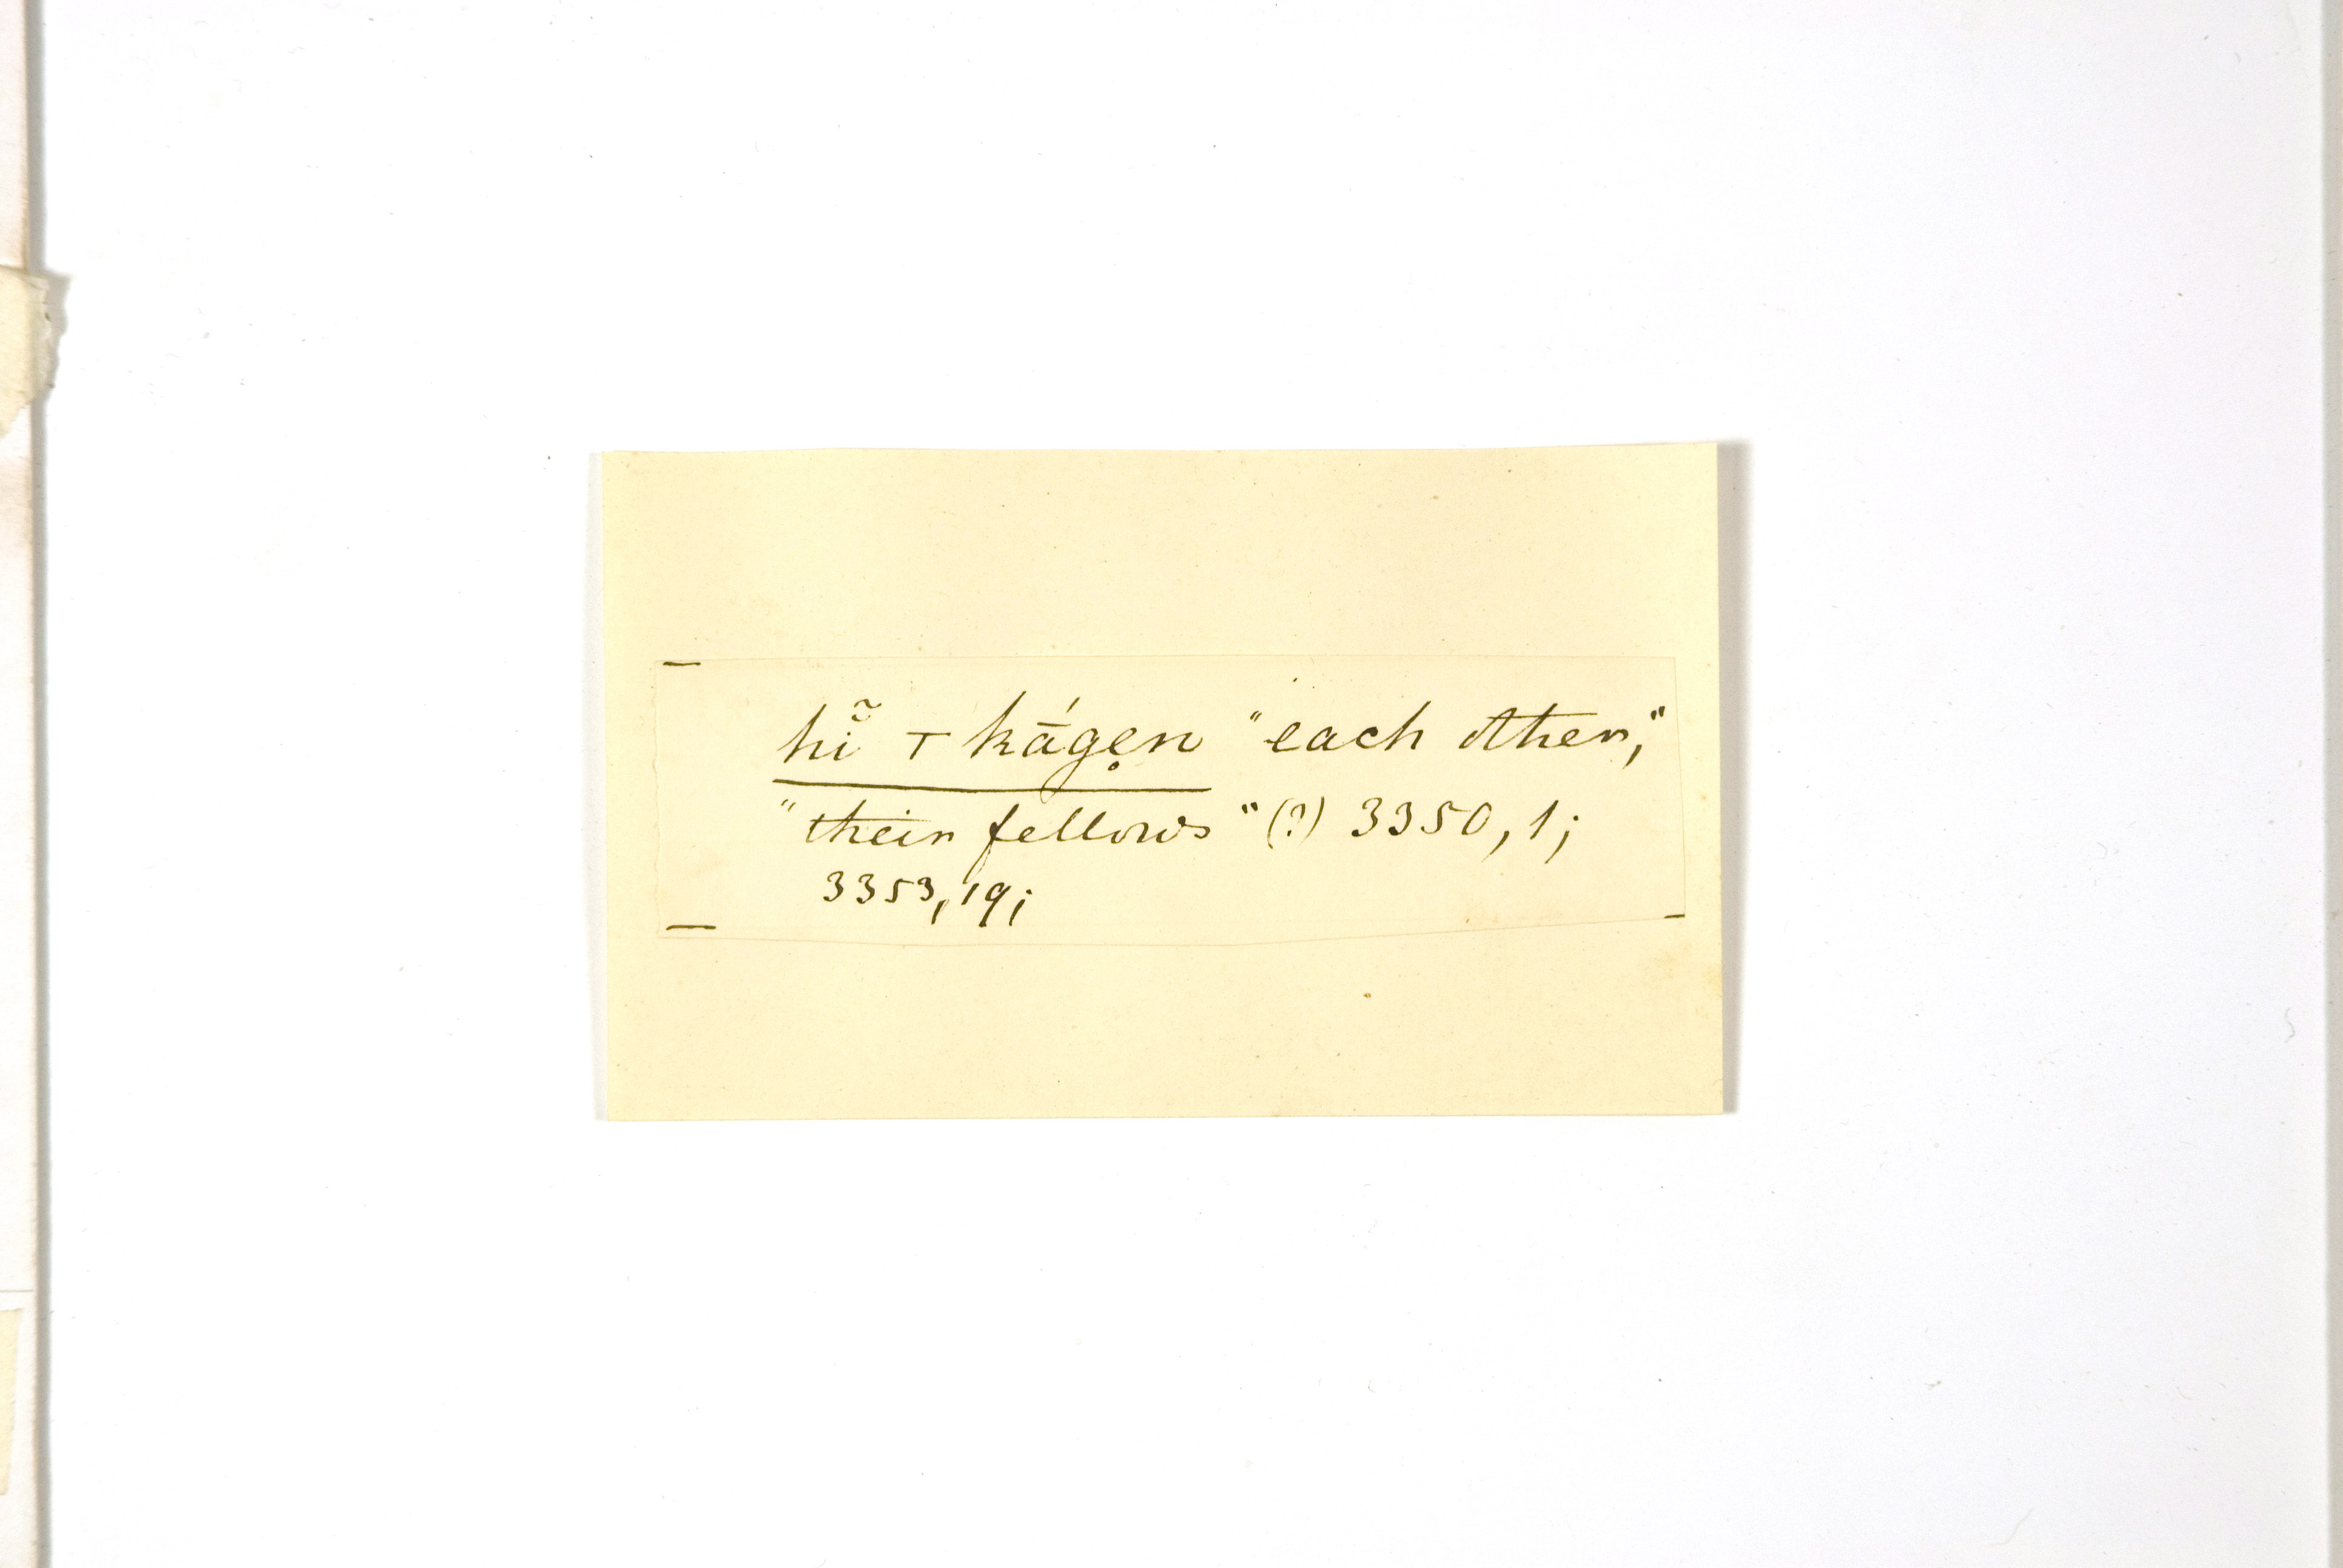 hĭ̃ + kā́ge̥n "each other,"
"their fellows" (?) 3350, 1;
3353, 19;